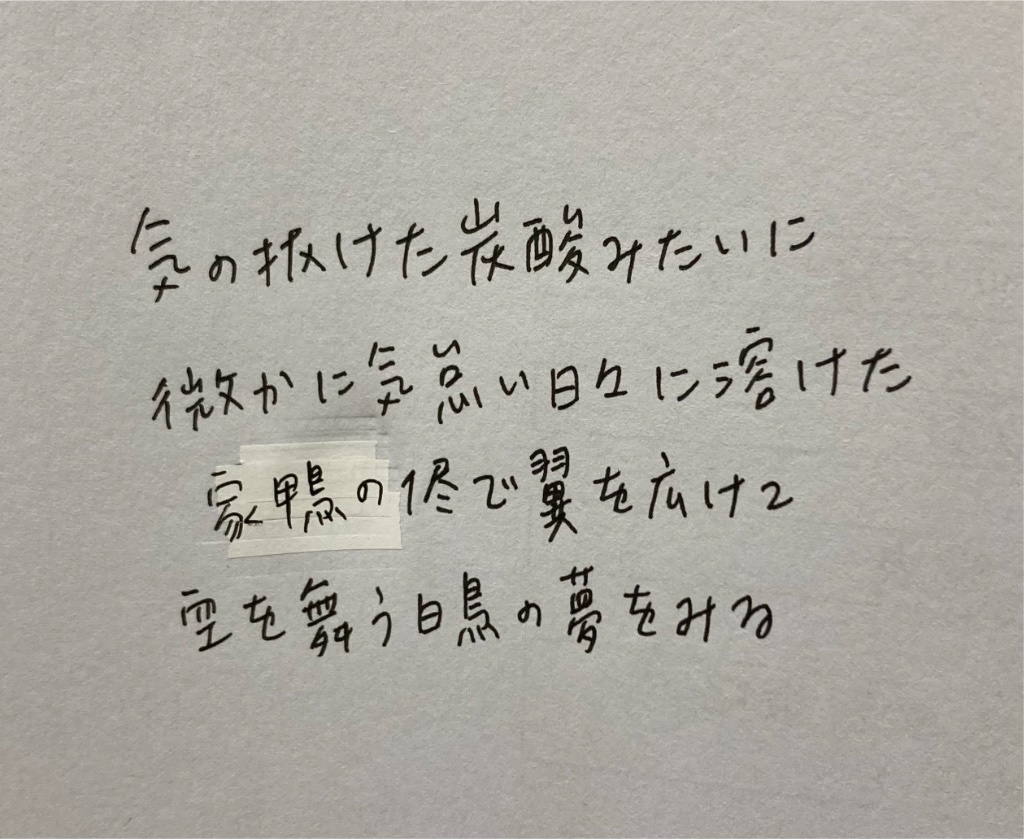 気の抜けた炭酸みたいに
微かに気怠い日々に溶けた
家鴨の侭で翼を広けて
空を舞う白鳥の夢をみる